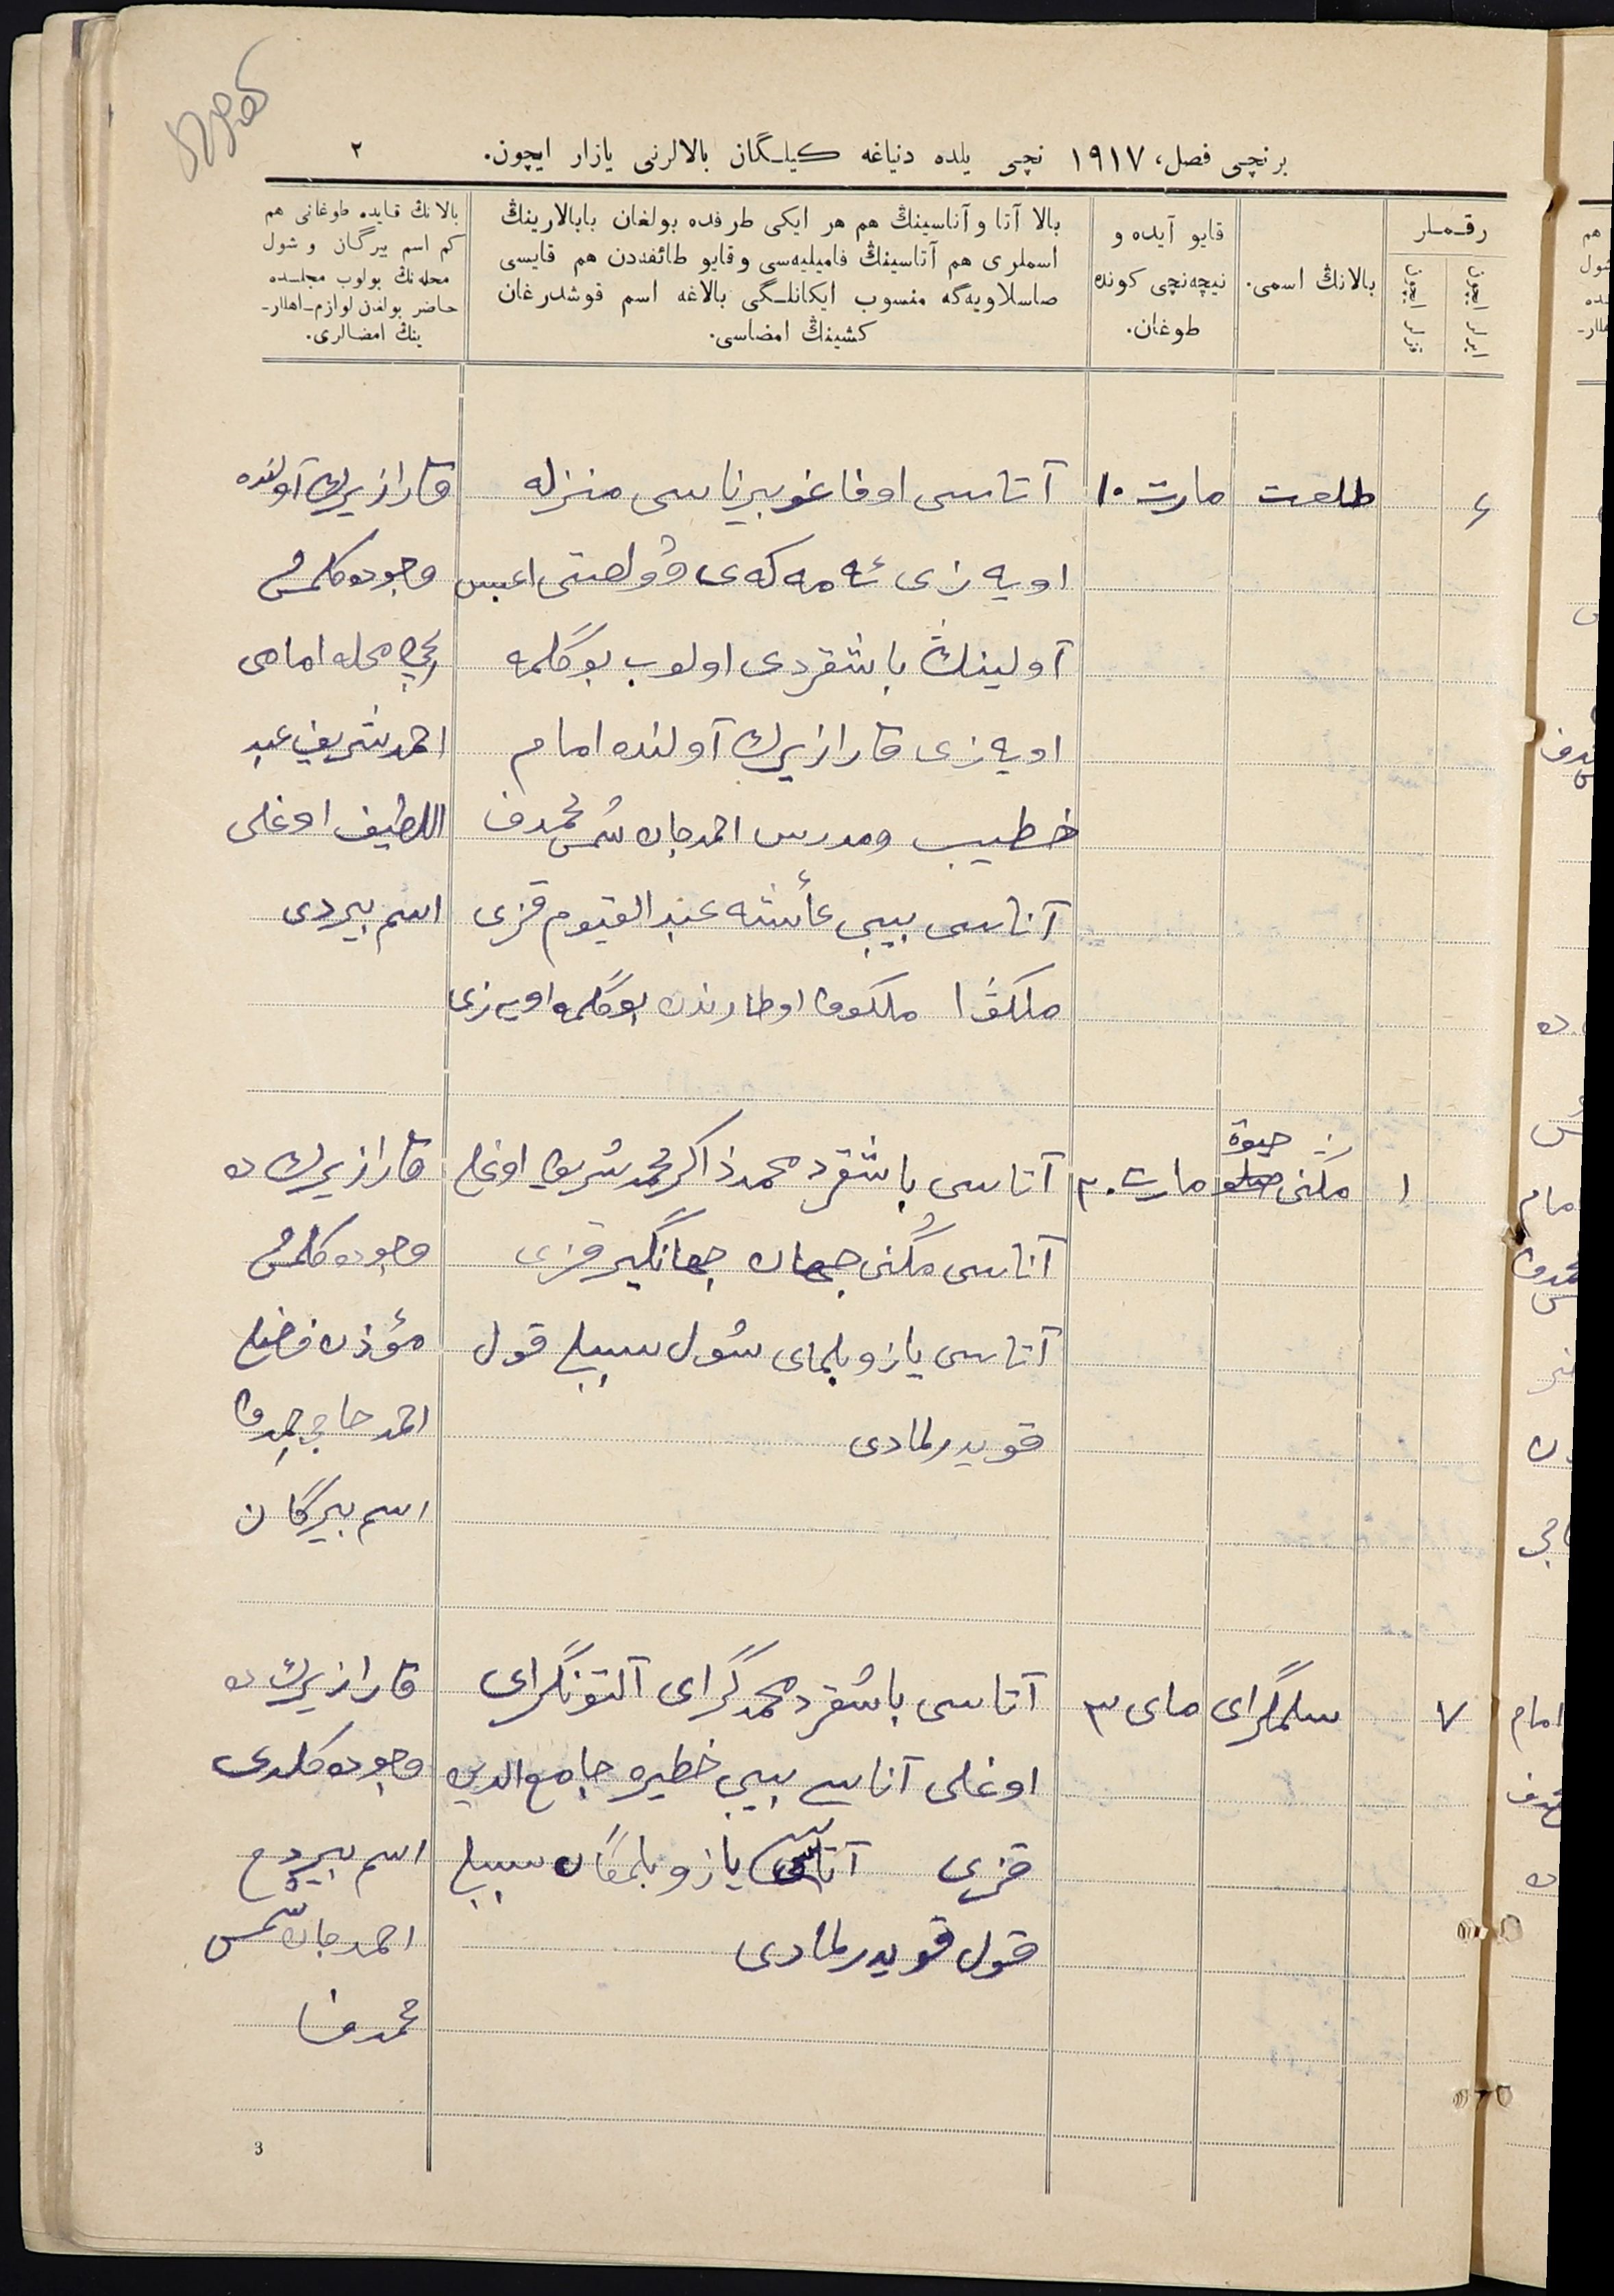 برنچی فصل، ١٩١٧ نچی یلده دنیاغه كیلـگان بالالرنی یازار ایچون. ٢
رقـمـلر
ایرلر ایچون
قزلر ایچون
بالانڭ اسمی.
قایو آیده و
نیچه‌نچی كونده
طوغان.
بالا آتا و آناسینڭ هم هر ایكی طرفده بولغان بابالارینڭ
اسملری هم آتاسینڭ فامیلیه‌سی و قایو طائفه‌دن هم قایسی
صاسلاویه‌گه منسوب ایكانلـگی بالاغه اسم قوشدرغان
كشینڭ امضاسی.
بالانڭ قایده طوغانی هم
كم اسم بیرگان و شول
محله‌نڭ بولوب مجلـسده
حاضر بولغن لوازم-اهلار-
ینڭ امضالری.
٦ طلعت مارت ١٠
آتاسی اوفا غوبیرناسی منزله
اویه زی ئه مه كه ی ڤولصتی اعبس
آولینڭ باشقردی اولوب بوگلمه
اویه زی قارازیرك آولنده امام
خطیب ومدرس احمدجان شمس محمدف
آناسی بیبی عائشه عبدالقیوم قزی
ملكوڤا ملكوف اوطارندن بوگلمه اویه زی
قارازیرك آولنده
وجوده كلمش
محله امامی
احمد شریف عبد
اللطیف اوغلی
اسم بیردی
١ مڭنی حیوة مارت ٣٠
آتاسی باشقرد محمد ذاكر محمد شریف اوغلی
آناسی مڭنی جهان جهانگیر قزی
آتاسی یازو بلمای شول سببلی قول
قویدرلمادی
قارازیرك ده
وجوده كلمش
مؤذن
احمد حاجی
اسم بیرگان
٧ سلمگرای مای ٣
آتاسی باشقرد محمد گرای آلتونگرای
اوغلی آناسی بیبی خطیره جامع الدین
قزی آتاسی یازو بلمگان سببلی
قول قویدرلمادی
قارازیرك ده
وجوده كلدی
اسم بیردم
احمدجان شمس
محمدف
3